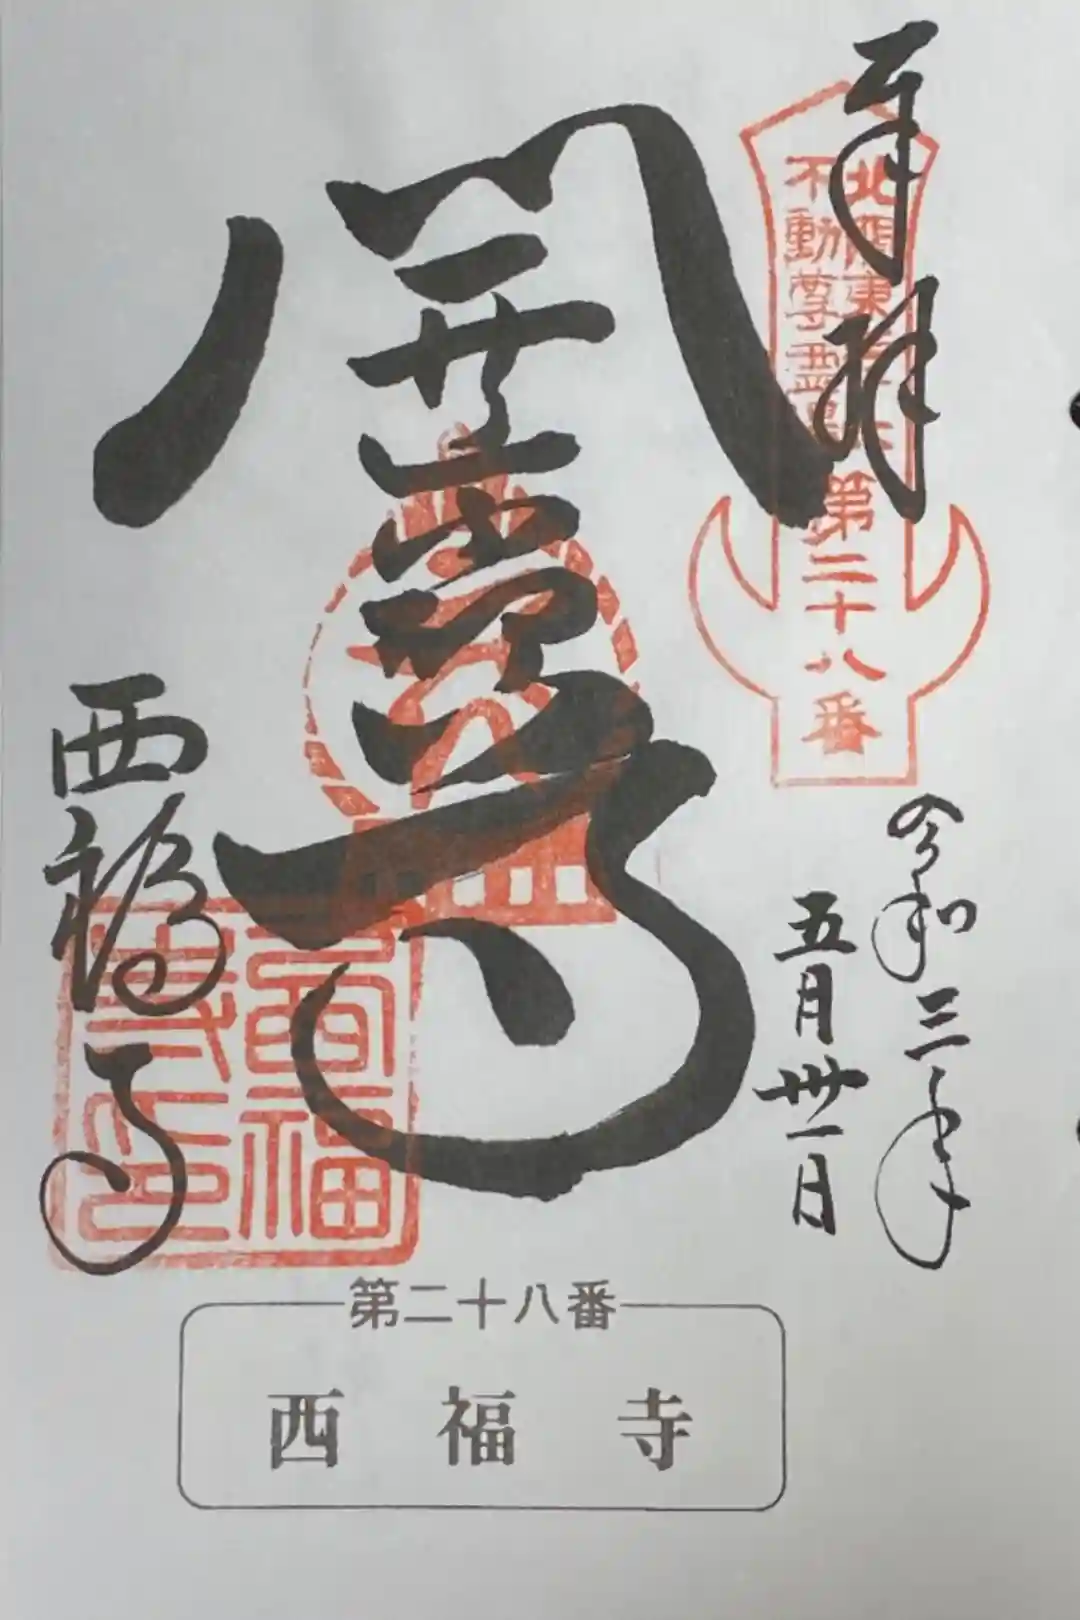 奉拝
北関東三十六
不動尊霊場
第二十八番
令和三年
五月卅一日
西福寺
西福
寺印
第二十八番
西福寺